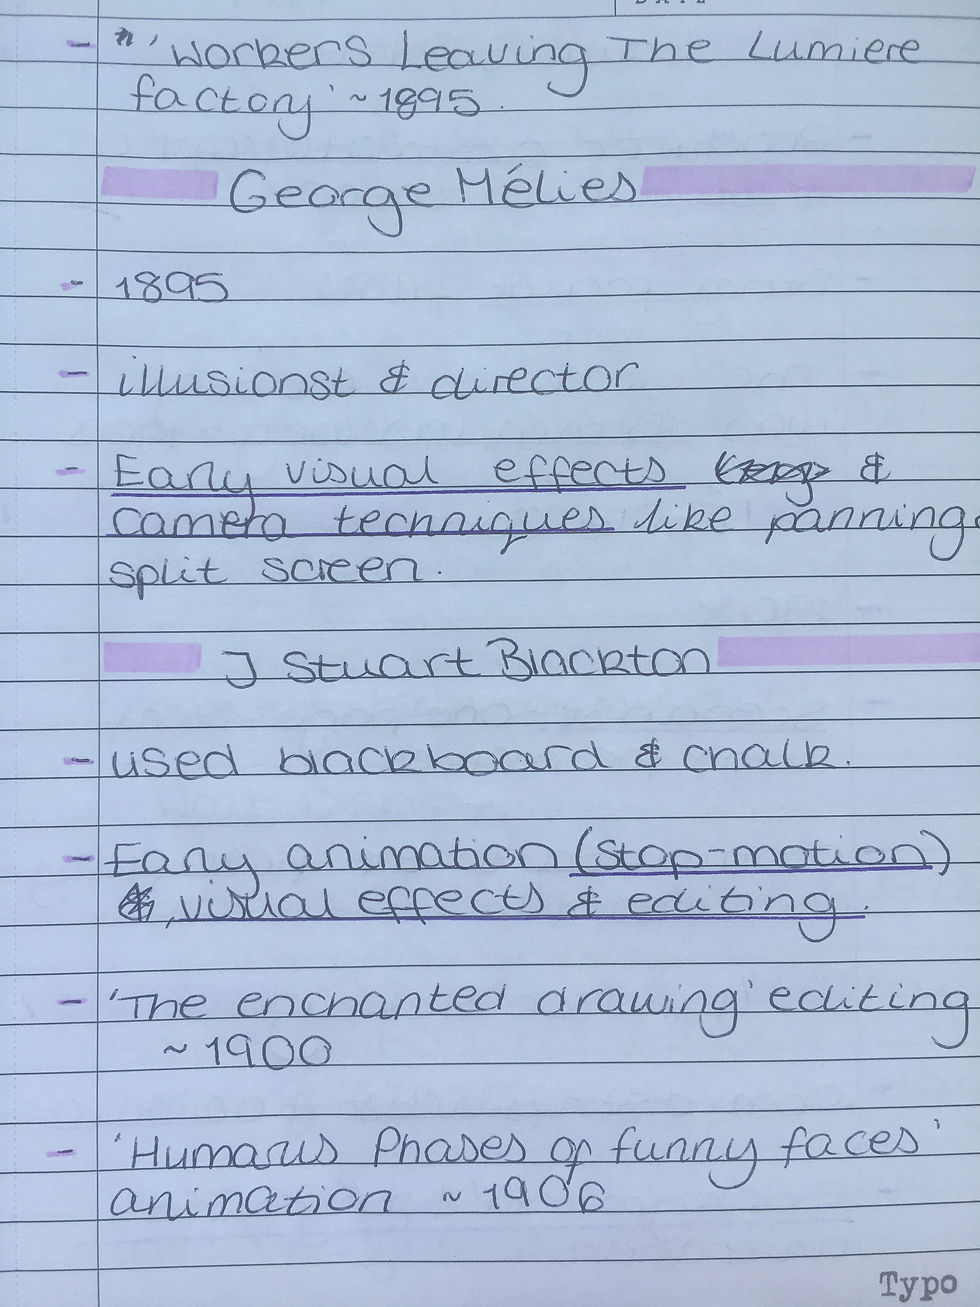 - 'Workers Leaving The Lumiere
factory' ~1895.
George Mélies
- 1895
- illusionst & director
- Early visual effects &
camera techniques like panning
split screen.
J Stuart Blackton
- used blackboard & chalk.
- Early animation (stop-motion)
, visual effects & editing.
- 'The enchanted drawing' editing
~1900
- 'Humarus Phases of funny faces'
animation ~1906
Typo